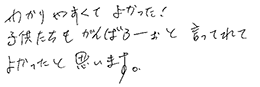 わかりやすくてよかった!
子供たちもがんばろーおと言ってれて
よかったと思います。